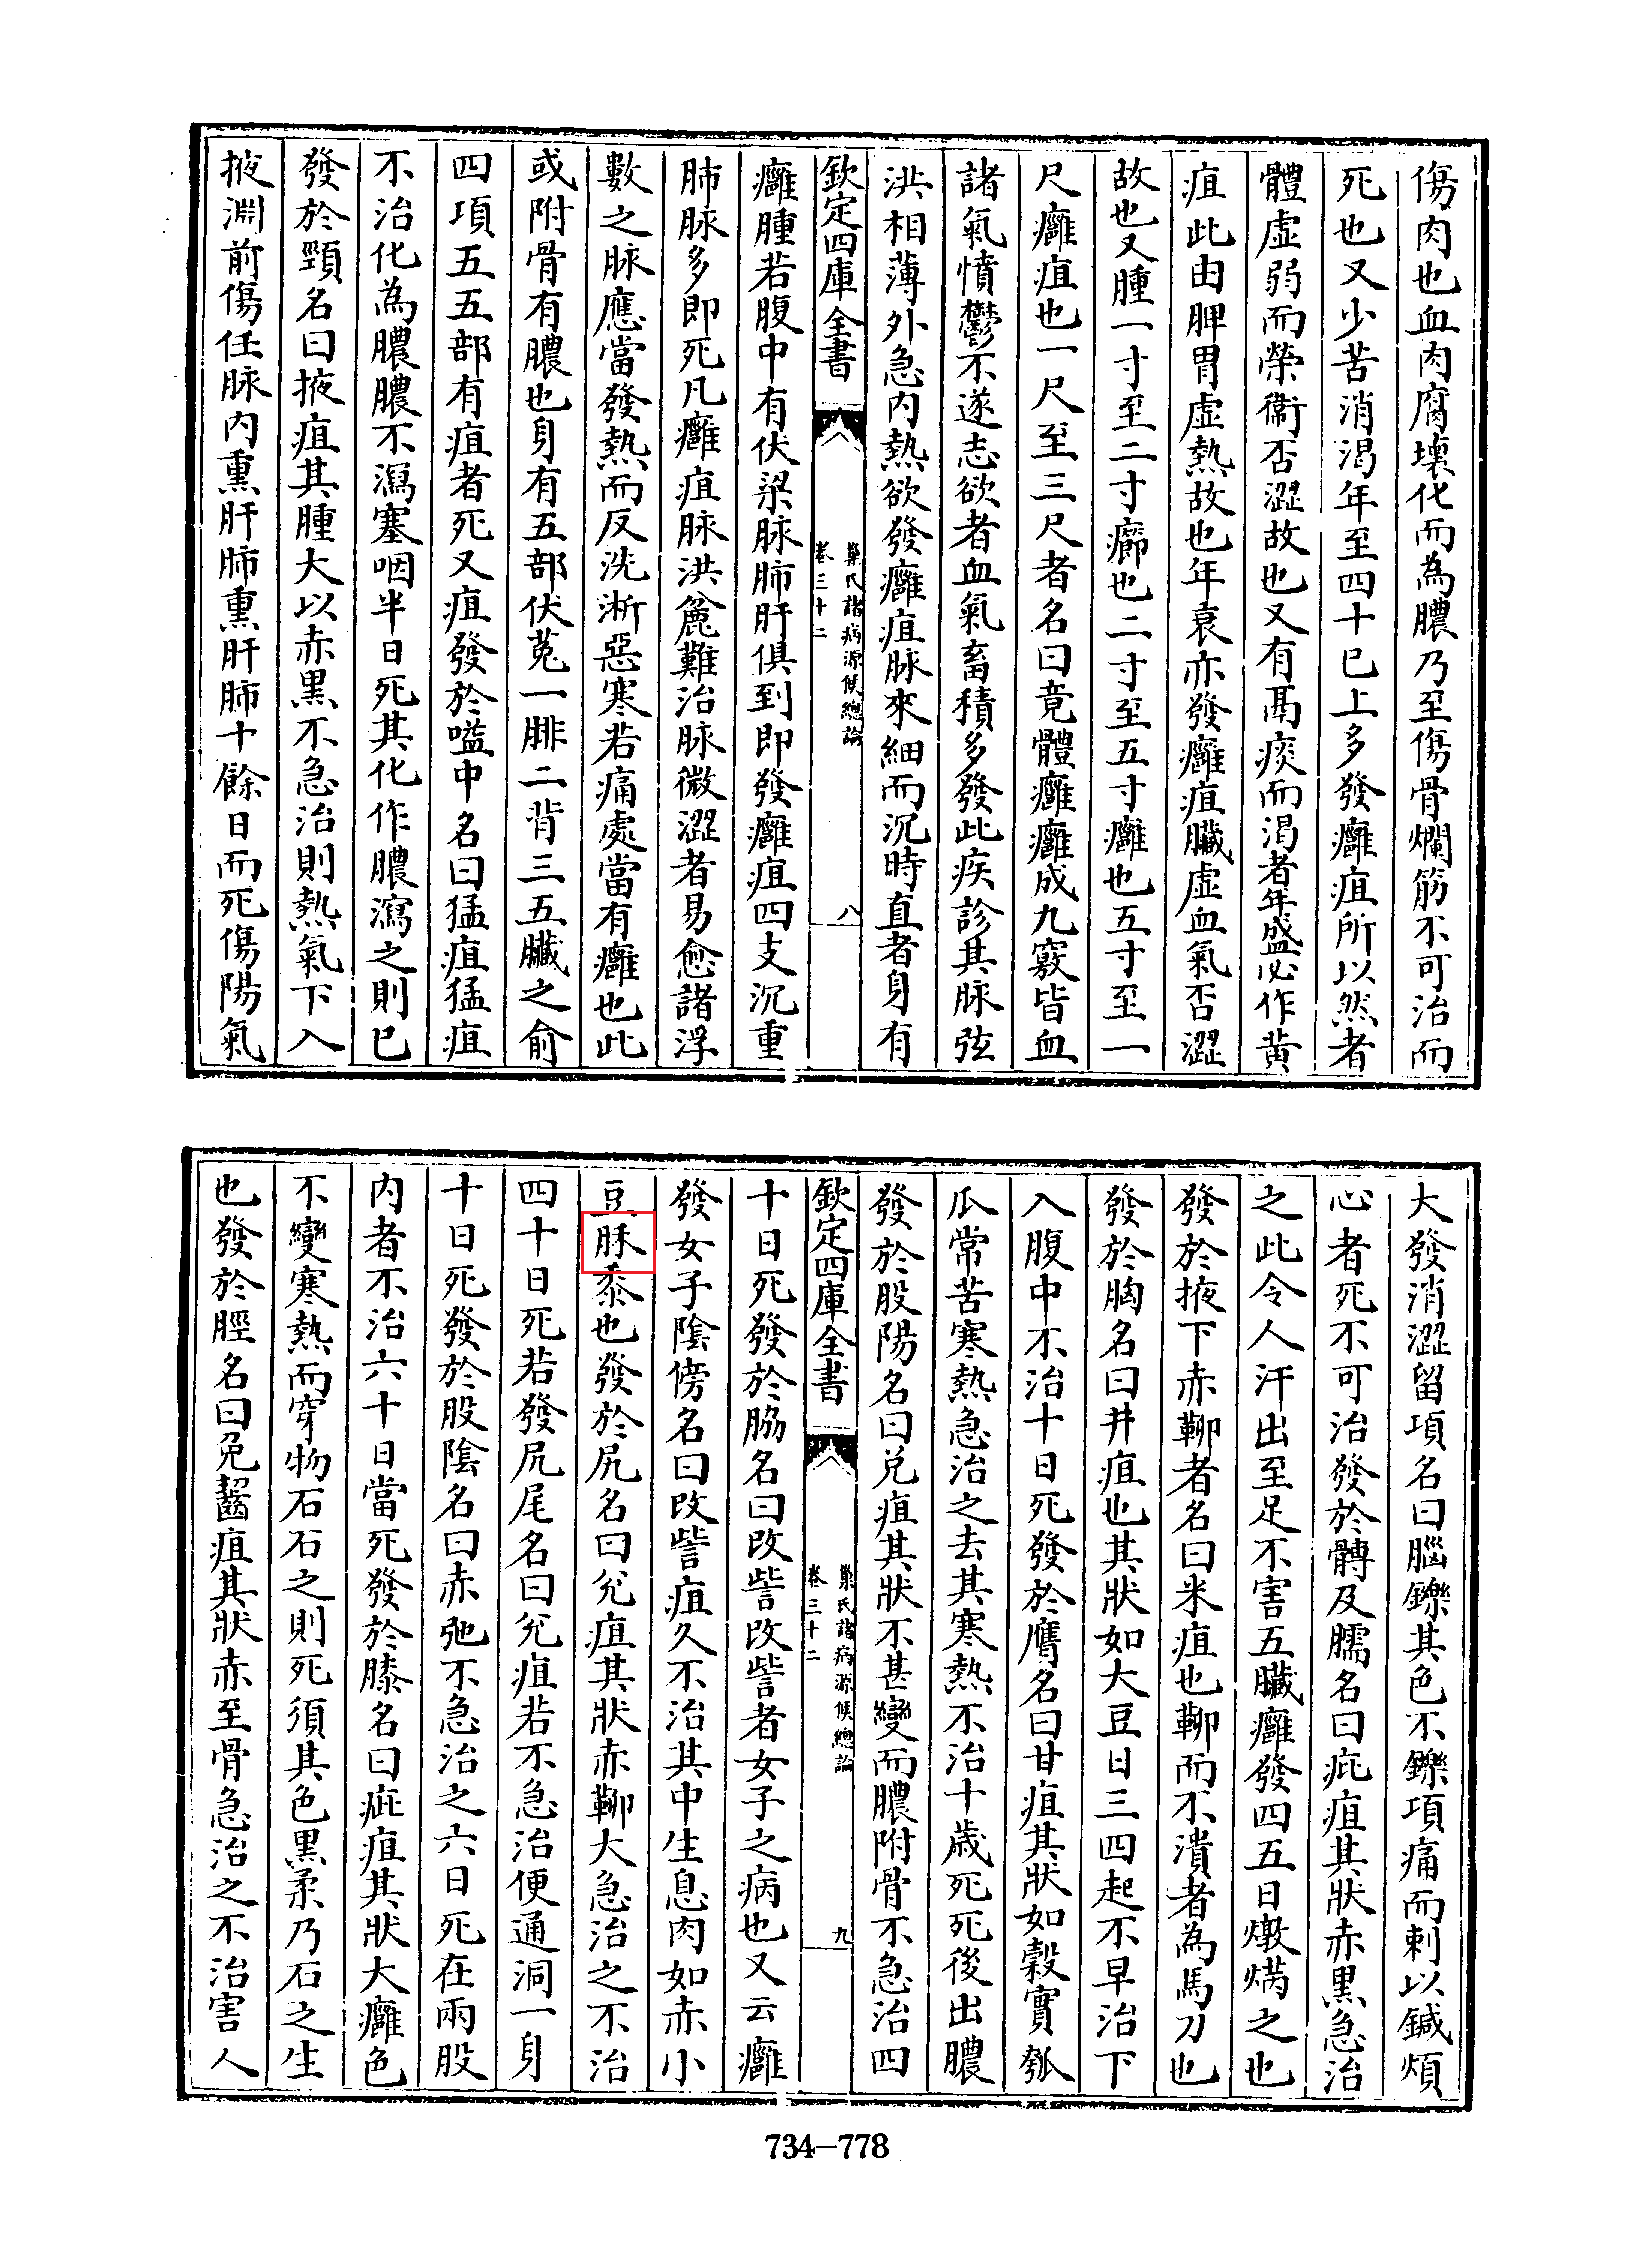 傷肉也血肉腐壊化而為膿乃至傷骨爛筋不可治而
死也又少苦消渴年至四十已上多發癰疽所以然者
體虛弱而榮衞否澀故也又有鬲痰而渴者年盛必作黄
疽此由脾胃虛熱故也年衰亦發癰疽臟虛血氣否澀
故也又腫一寸至二寸癤也二寸至五寸癰也五寸至一
尺癰疽也一尺至三尺者名曰竟體癰癰成九竅皆血
諸氣憤鬱不遂志欲者血氣畜積多發此疾診其脉弦
洪相薄外急内熱欲發癰疽脉來細而沉時直者身有
欽定四庫全書
巢氏諸病源候總論
卷三十二
八
癰腫若腹中有伏梁脉肺肝俱到即發癰疽四支沉重
肺脉多即死凡癰疽脉洪麄難治脉微澀者易愈諸浮
數之脉應當發熱而反洗淅惡寒若痛處當有癰也此
或附骨有膿也身有五部伏菟一腓二背三五臟之俞
四項五五部有疽者死又疽發於嗌中名曰猛疽猛疽
不治化為膿膿不瀉塞咽半日死其化作膿瀉之則已
發於頸名曰掖疽其腫大以赤黒不急治則熱氣下入
掖淵前傷任脉内熏肝肺熏肝肺十餘日而死傷陽氣
大發消澀留項名曰腦鑠其色不鑠項痛而刺以鍼煩
心者死不可治發於髆及臑名曰疵疽其狀赤黒急治
之此令人汗出至足不害五臟癰發四五日㷟焫之也
發於掖下赤鞕者名曰米疽也鞕而不潰者為馬刀也
發於胸名曰井疽也其狀如大豆日三四起不早治下
入腹中不治十日死發於膺名曰甘疽其狀如穀實瓠
瓜常苦寒熱急治之去其寒熱不治十歳死死後出膿
發於股陽名曰兑疽其狀不甚變而膿附骨不急治四
欽定四庫全書
巢氏諸病源候總論
卷三十二
九
十日死發於脇名曰改訾改訾者女子之病也又云癰
發女子隂傍名曰改訾疽久不治其中生息肉如赤小
豆䏡黍也發於尻名曰兊疽其狀赤鞕大急治之不治
四十日死若發尻尾名曰兊疽若不急治便通洞一身
十日死發於股隂名曰赤弛不急治之六日死在兩股
内者不治六十日當死發於膝名曰疵疽其狀大癰色
不變寒熱而穿物石石之則死須其色黒柔乃石之生
也發於脛名曰兔齧疽其狀赤至骨急治之不治害人
734—778